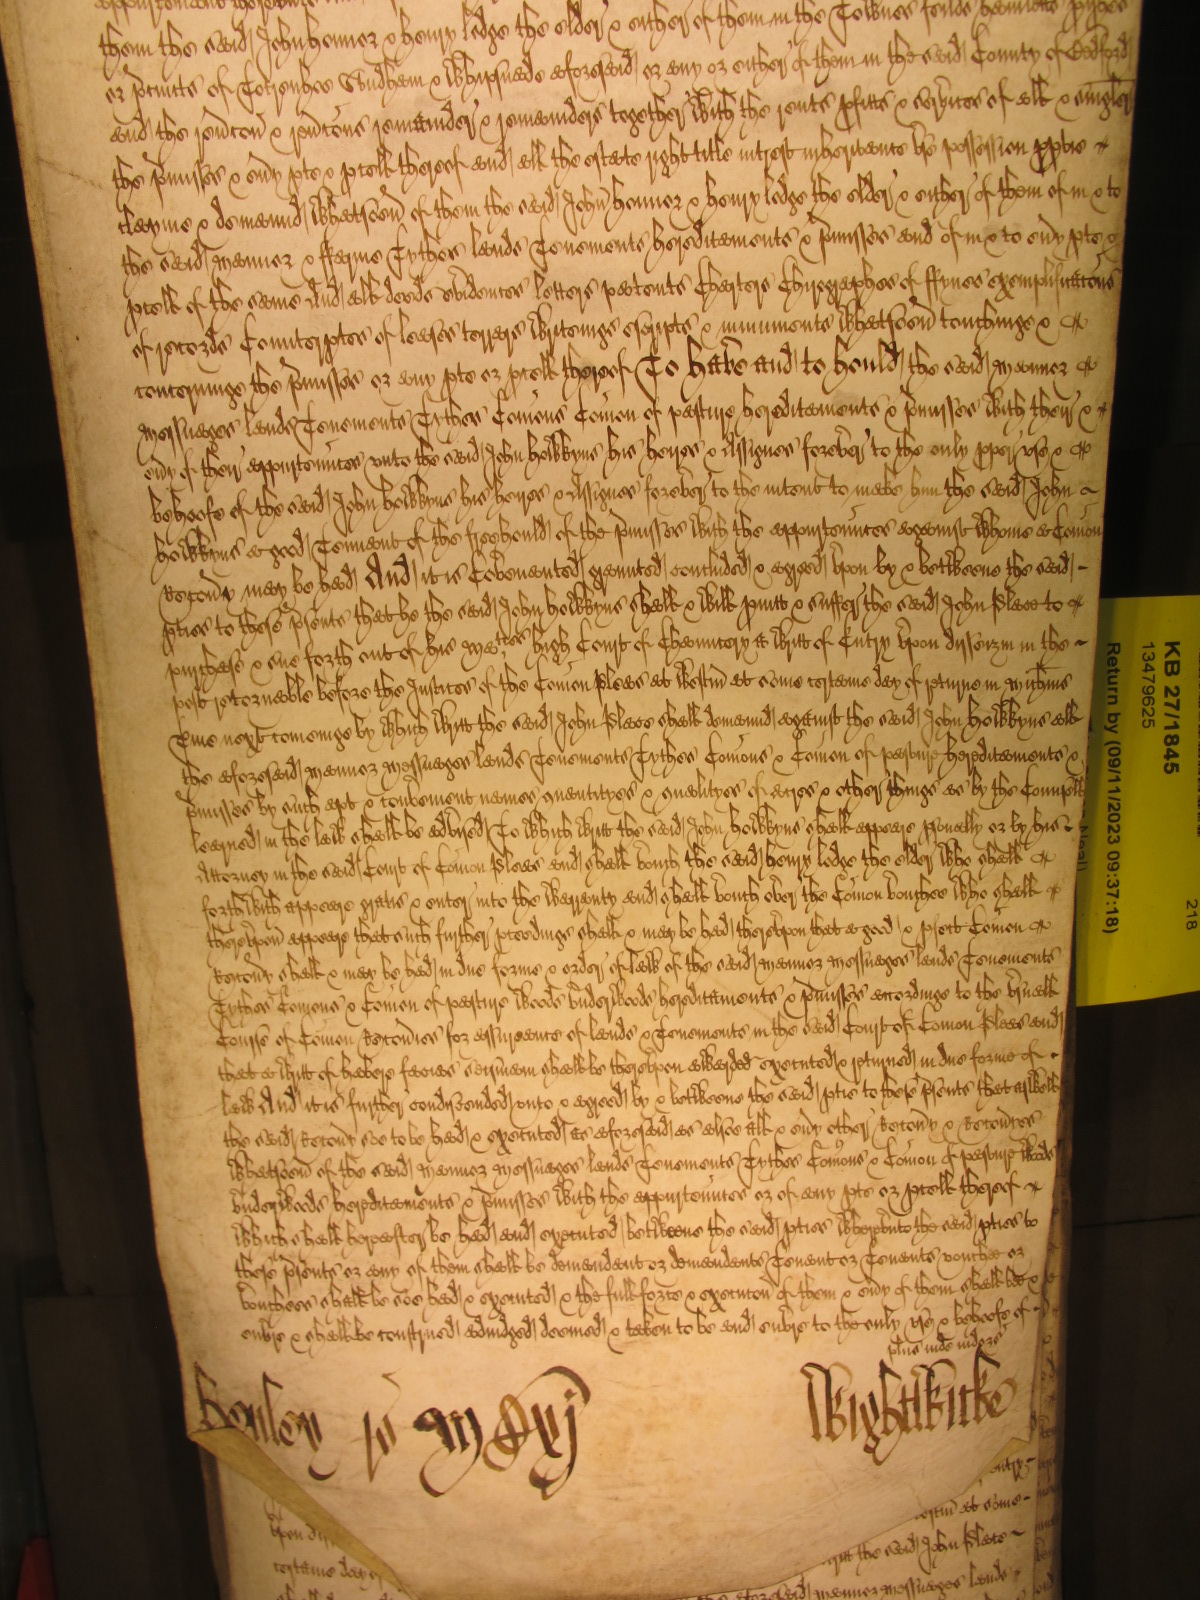 them the said John honner & henry ledge the elder & either of them in the Townes feilds hamletts
or p'cincts of Totenhoe Studham & Whipsnade aforesaid or any or either of them in the said County of Bedford
and the rev'con & rev'cons remainder & remainders together with the rents p'fitts & services of all & singler
the p'misses & eu'y p'te & p'cell thereof and all the estate right title intrest inheritance use possession p'ptie
clayme & demaund whatsoeu' of them the said John honner & henry ledge the elder & either of them of in & to
the said mannor & ffarme Tythes lands Tenements hereditaments & p'misses and of in & to eu'y p'te &
p'cell of the same And all deeds evidences letters patents Charters Chirographes of ffynes exemplificacons
of records Counterp'tes of leases terrars writeings escripts & minuments whatsoeu' touchinge &
concerninge the p'misses or any p'te or p'cell thereof To have and to hould the said mannor
messuages lands Tenements Tythes Com'ons Com'on of pasture hereditaments & p'misses with their &
eu'y of their appurten'nces unto the said John hawkyns his heires & Assignes forever to the only p'per use &
behoofe of the said John hawkyns his heires & Assignes forever to the intent to make him the said John
hawkyns a good Tennant of the freehould of the p'misses with the appurten'nces against whome a Com'on
Recou'y may be had And it is Covenanted graunted concluded & agreed upon by & betweene the said
p'ties to these p'sents that he the said John hawkyns shall & will p'mitt & suffer the said John Place to
purchase & sue forth out of his Ma'ties high Court of Chauncery a writt of Entry upon disseizin in the
post retornable before the Justices of the Com'on Pleas at Westm' at some certaine day of returne in Mich'mas
T'me next comeinge by which writt the said John Place shall demaund against the said John hawkyns all
the aforesaid mannor messuages lands Tenements Tythes Com'ons & Com'on of pasture hereditaments &
p'misses by such apt & convenient names quantityes & qualityes of acres & other things as by the Councell
learned in the law shall be advised To which writt the said John hawkyns shall appeare p'sonally or by his
Attorney in the said Court of Com'on Pleas and shall vouch the said henry ledge the elder who shall
forthwith appeare gratis & enter into the warranty and shall vouch over the Com'on vouchee who shall
thereupon appeare that such further p'ceedings shall & may be had thereupon that a good & p'fect Com'on
Recou'y shall & may be had in due forme & order of law of the said mannor messuages lands Tenements
Tythes Com'ons & Com'on of pasture woods underwoods hereditaments & p'misses accordinge to the usuall
Course of Com'on Recou'ies for assurance of lands & Tenements in the said Court of Com'on Pleas and
that a writt of habere facias seisinam shall be thereupon awarded executed & returned in due forme of
law And it is further condiscended unto & agreed by & betweene the said p'ties to these p'sents that aswell
the said Recou'y soe to be had & executed as aforesaid as alsoe all & eu'y other Recou'y & Recou'ies
whatsoeu' of the said mannor messuages lands Tenements Tythes Com'ons & Com'on of pasture woods
underwoods hereditaments & p'misses with the appurten'nces or of any p'te or p'cell thereof
which shall hereafter be had and executed betweene the said p'ties whereunto the said p'ties to
these p'sents or any of them shall be demandant or demandants Tenant or Tenants vouchee or
vouchees shall be soe had & executed & the full force & execucon of them & eu'y of them shall bee &
enure & shall be construed adiudged deemed & taken to be and enure to the only use & behoofe of
plus inde indorse
Henley
Wightwicke
at some
the said John Place
mannor messuages lands
certaine day
KB 27/1845
13479625
Return by (09/11/2023 09:37:18)
218